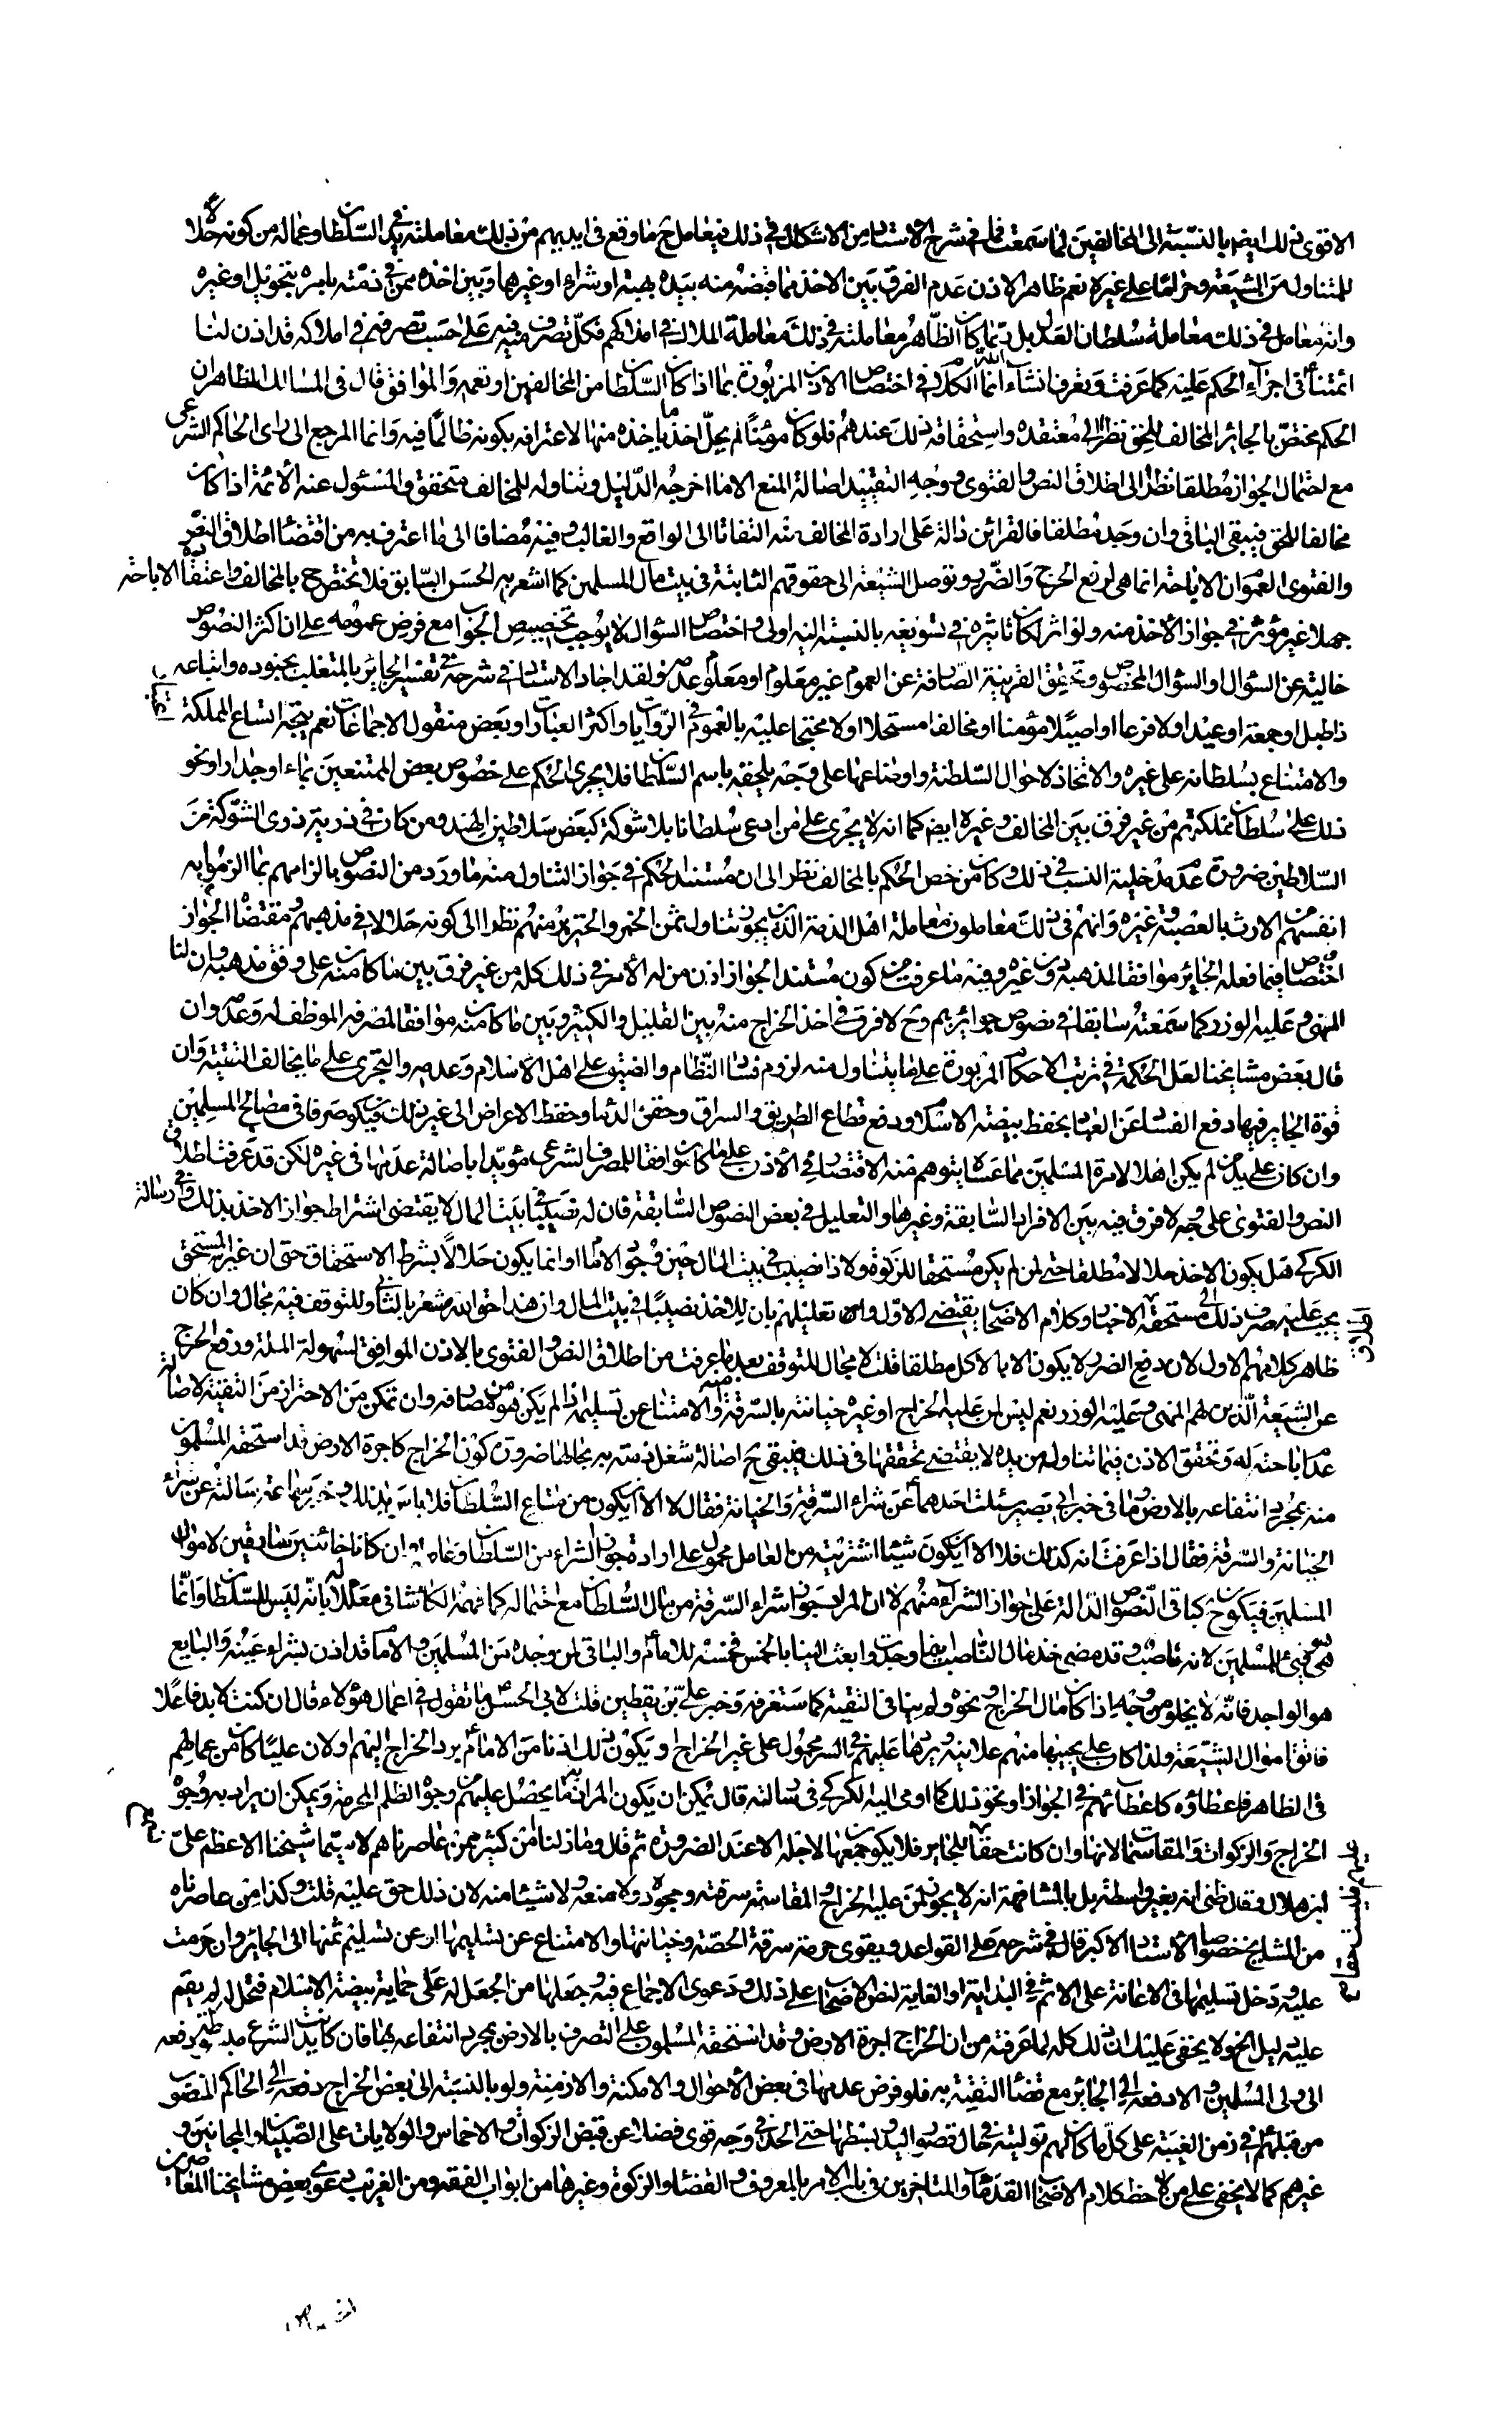 الاقوى ذلك ايضا بالنسبة الى المخالفين لما سمعت فما في شرح الاستاد من الاشكال في ذلك فيعامل ح ما وقع في ايديهم من ذلك معاملته في يد السلطان وعماله من كونه حلالا
للمتناول من الشيعة وحراما على غيره نعم ظاهر الاذن عدم الفرق بين الاخذ مما قبضه منه بيده بهبة او شراء او غيرها وبين اخذه ممن في ذمته بامره بتحويل او غيره
وانه معامل في ذلك معاملة سلطان العدل بل ربما كان الظاهر معاملته في ذلك معاملة الملاك في املاكهم فكل تصرف منه فيه على حسب تصرفهم في املاكه قد اذن لنا
ائمتنا في اجراء الحكم عليه كما عرفت وتعرف انشاء الله انما الكلام في اختصاص الاذن المزبورة بما اذا كان السلطان من المخالفين او تعمه والموافق قال في المسالك الظاهر ان
الحكم مختص بالجائر المخالف للحق نظرا الى معتقده واستحقاقه ذلك عندهم فلو كان مؤمنا لم يحل اخذ ما ياخذه منها لاعترافه بكونه ظالما فيه وانما المرجع الى راى الحاكم الشرعي
مع احتمال الجواز مطلقا نظرا الى اطلاق النص والفتوى ووجه التقييد اصالة المنع الا ما اخرجه الدليل وتناوله للمخالف متحقق والمسئول عنه الأئمة اذا كان
مخالفا للحق فيبقى الباقى وان وجد مطلقا فالقرائن دالة على ارادة المخالف منه التفاتا الى الواقع والغالب وفيه مضافا الى ما اعترف به من اقتضاء اطلاق النص
والفتوى العموم ان الاباحة انما هى لرفع الحرج والضرر وتوصل الشيعة الى حقوقهم الثابتة في بيت مال المسلمين كما اشعر به الحسن السابق فلا تختص ح بالمخالف واعتقاده الاباحة
جهلا غير مؤثر في جواز الاخذ منه ولو اثر لكان تاثيره في تسويغه بالنسبة اليه اولى واختصاص السؤال لا يوجب تخصيص الجواب مع فرض عمومه على ان اكثر النصوص
خالية عن السؤال او السؤال المخصوص وتحقق القرينة الصارفة عن العموم غير معلوم او معلوم عدمه ولقد اجاد الاستاد في شرحه في تفسير الجائر بالمتغلب بجنوده واتباعه
ذا طبل او جمعة او عيد اولا فرعا او اصيلا مؤمنا او مخالفا مستحلا اولا محتجا عليه بالعموم في الروايات واكثر العبارات وبعض منقول الاجماعات نعم يتجه اتساع المملكة
والامتناع بسلطانه على غيره والاتخاذ لاحوال السلطنة واوضاعها على وجه يلحقه باسم السلطان فلا يجرى الحكم على خصوص بعض الممتنعين بماء او جدار او نحو
ذلك على سلطان مملكتهم من غير فرق بين المخالف وغيره ايضا كما انه لا يجرى على من ادعى سلطانا بلا شوكة كبعض سلاطين الهند ومن كان في ذرية ذوى الشوكة من
السلاطين ضرورة عدم مدخلية النسب في ذلك وكان من خص الحكم بالمخالف نظر الى ان مستند الحكم في جواز التناول منه ما ورد من النصوص بالزامهم بما الزموا به
انفسهم من الارث بالعصبة وغيره وانهم في ذلك معاملون معاملة اهل الذمة الذين يجوز تناول ثمن الخمر والخنزير منهم نظرا الى كونه حلالا في مذهبهم ومقتضاه الجواز
اختصاصه فيما فعله الجائر موافقا لمذهبه دون غيره وفيه ما عرفت من كون مستند الجواز اذن من له الأمر في ذلك كله من غير فرق بين ما كان منه على وفق مذهبه وان لنا
المهنى وعليه الوزر كما سمعته سابقا في نصوص جوائزهم وح لا فرق في اخذ الخراج منه بين القليل والكثير وبين ما كان منه موافقا لمصرفه الموظف له وعدمه وان
قال بعض مشايخنا لعل الحكمة في ترتب الاحكام المزبورة على ما يتناول منه لزوم فساد النظام والضيق على اهل الاسلام وعدمه والتجرى على ما يخالف التقية وان
قوة الجاير فيها دفع الفساد عن العباد بحفظ بيضة الاسلام ودفع قطاع الطريق والسراق وحقن الدماء وحفظ الاعراض الى غير ذلك فيكون صرفا في مصالح المسلمين
وان كان على يد من لم يكن اهلا لامرة المسلمين مما عساه يتوهم منه الاقتصار في الأذن على ما كان موافقا للمصرف الشرعى مؤيدا باصالة عدمها في غيره لكن قد عرفت اطلاق
النص والفتوى على وجه لا فرق فيه بين الافراد السابقة وغيرها والتعليل في بعض النصوص السابقة فان له نصيبا في بيت المال لا يقتضى اشتراط جواز الاخذ بذلك وفي رسالة
الكركي هل يكون الاخذ حلالا مطلقا حتى لمن لم يكن مستحقا للزكوة ولا ذا نصيب في بيت المال حين وجود الامام او انما يكون حلالا بشرط الاستحقاق حتى ان غير المستحق
يجب عليه صرف ذلك الى مستحقه اطلاق الاخبار وكلام الاصحاب يقتضي الاول وان تعليلهم بان للاخذ نصيبا في بيت المال وان هذا حق الله مشعر بالثاني وللتوقف فيه مجال وان كان
ظاهر كلامهم الاول لان دفع الضرر لا يكون الا بالاكل مطلقا قلت لا مجال للتوقف بعد ما عرفت من اطلاق النص والفتوى بالاذن الموافق لسهولة الملة ورفع الحرج
عن الشيعة الذين لهم المهنى وعليه الوزر نعم ليس لمن عليه الخراج او غيره خيانته بالسرقة منه والامتناع عن تسليمه اذا لم يكن هو من مصارفه وان تمكن من الاحتراز من التقية لاصالة
عدم اباحته له وتحقق الاذن فيما تناول من يده لا يقتضي تحققها في ذلك فيبقى ح اصالة شغل ذمته به بحالها ضرورة كون الخراج كاجرة الارض قد استحقه المسلمون
منه بمجرد انتفاعه بالارض وما في خبر ابى بصير سئلت احدهما عن شراء السرقة والخيانة فقال لا الا ان يكون من متاع السلطان فلا باس بذلك وخبر سماعة سالته عن شراء
الخيانة والسرقة فقال اذا عرفت انه كذلك فلا الا ان يكون شيئا اشتريته من العامل محمول على ارادة جواز الشراء من السلطان وعامله وان كانا خائنين سارقين لاموال
المسلمين فيكون ح كباقى النصوص الدالة على جواز الشراء منهم لا ان المراد جواز شراء السرقة من مال السلطان مع احتماله كما فهمه الكاشانى معللا له بانه ليس للسلطان وانما
هو فيئ للمسلمين لانه غاصب وقد مضى خذ مال الناصب اينما وجدت وابعث الينا بالخمس فخمسه للامام والباقى لمن وجده من المسلمين والامام قد اذن بشراء عينه والبايع
هو الواجد فانه لا يخلو من وجه اذا كان مال الخراج ونحوه ولم ينافى التقية كما ستعرفه وخبر على بن يقطين قلت لابى الحسن ما تقول في اعمال هؤلاء قال ان كنت لابد فاعلا
فاتق اموال الشيعة ولذا كان على يجبيها منهم علانية ويردها عليهم في السر محمول على غير الخراج او يكون ذلك اذنا من الامام يرد الخراج اليهم او لان عليا كان من عمالهم
في الظاهر فاعطاؤه كاعطائهم في الجواز او نحو ذلك كما اومى اليه الكركي في رسالته قال يمكن ان يكون المراد به ما يحصل عليهم من وجوه الظلم المحرمة ويمكن ان يراد به وجوه
الخراج والزكوات والمقاسمات لانها وان كانت حقا عليهم فليست حقا للجاير فلا يكون جمعها لاجله الا عند الضرورة ثم قال وما زلنا من كثير ممن عاصرناهم لا سيما شيخنا الاعظم على
ابن هلال وقال ظنى انه بغير واسطة بل بالمشافهة انه لا يجوز لمن عليه الخراج والمقاسمة سرقته وجحوده ولا منعه ولا شيئا منه لان ذلك حق عليه قلت وكذا من عاصرناه
من المشايخ خصوصا الاستاد الاكبر قال في شرحه على القواعد ويقوى حرمة سرقة الحصة وخيانتها والامتناع عن تسليمها او عن تسليم ثمنها الى الجائر وان حرمت
عليه ودخل تسليمها في الاعانة على الاثم في البداية او الغاية لنص الاصحاب على ذلك ودعوى الاجماع فيه وجعلها من الجعل له على حماية بيضة الاسلام فتحل له لو لم يقم
عليه دليل النحو ولا يخفى عليك ان ذلك كله لما عرفته من ان الخراج اجرة الارض وقد استحقه المسلمون على التصرف بالارض بمجرد انتفاعه بها فان كانت يد الشرع مبسوطة دفعه
الى ولى المسلمين والا دفعه الى الجائر مع قضاء التقية به فلو فرض عدمها في بعض الأحوال والامكنة والازمنة ولو بالنسبة الى بعض الخراج دفعه الى الحاكم المنصوب
من قبلهم في زمن الغيبة على كل ما كان لهم توليته في حال قصور اليد وبسطها حتى الحدود في وجه قوى فضلا عن قبض الزكوات والاخماس والولايات على الصبيان والمجانين و
غيرهم كما لا يخفى على من لاحظ كلام الاصحاب القدماء والمتاخرين في باب الامر بالمعروف والقضاء والزكوة وغيرها من ابواب الفقه ومن الغريب دعوى بعض مشايخنا المعاصرين